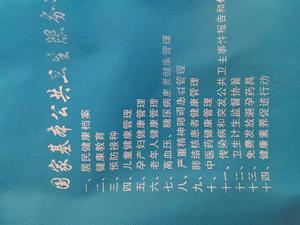 国家基本公共卫生服务
一、居民健康档案
二、健康教育
三、预防接种
四、儿童健康管理
五、孕产妇健康管理
六、老年人健康管理
七、高血压、糖尿病患者健康管理
八、严重精神障碍患者管理
九、肺结核患者健康管理
十、中医药健康管理
十一、传染病和突发公共卫生事件报告和
十二、卫生计生监督协管
十三、免费发放避孕药具
十四、健康素养促进行动